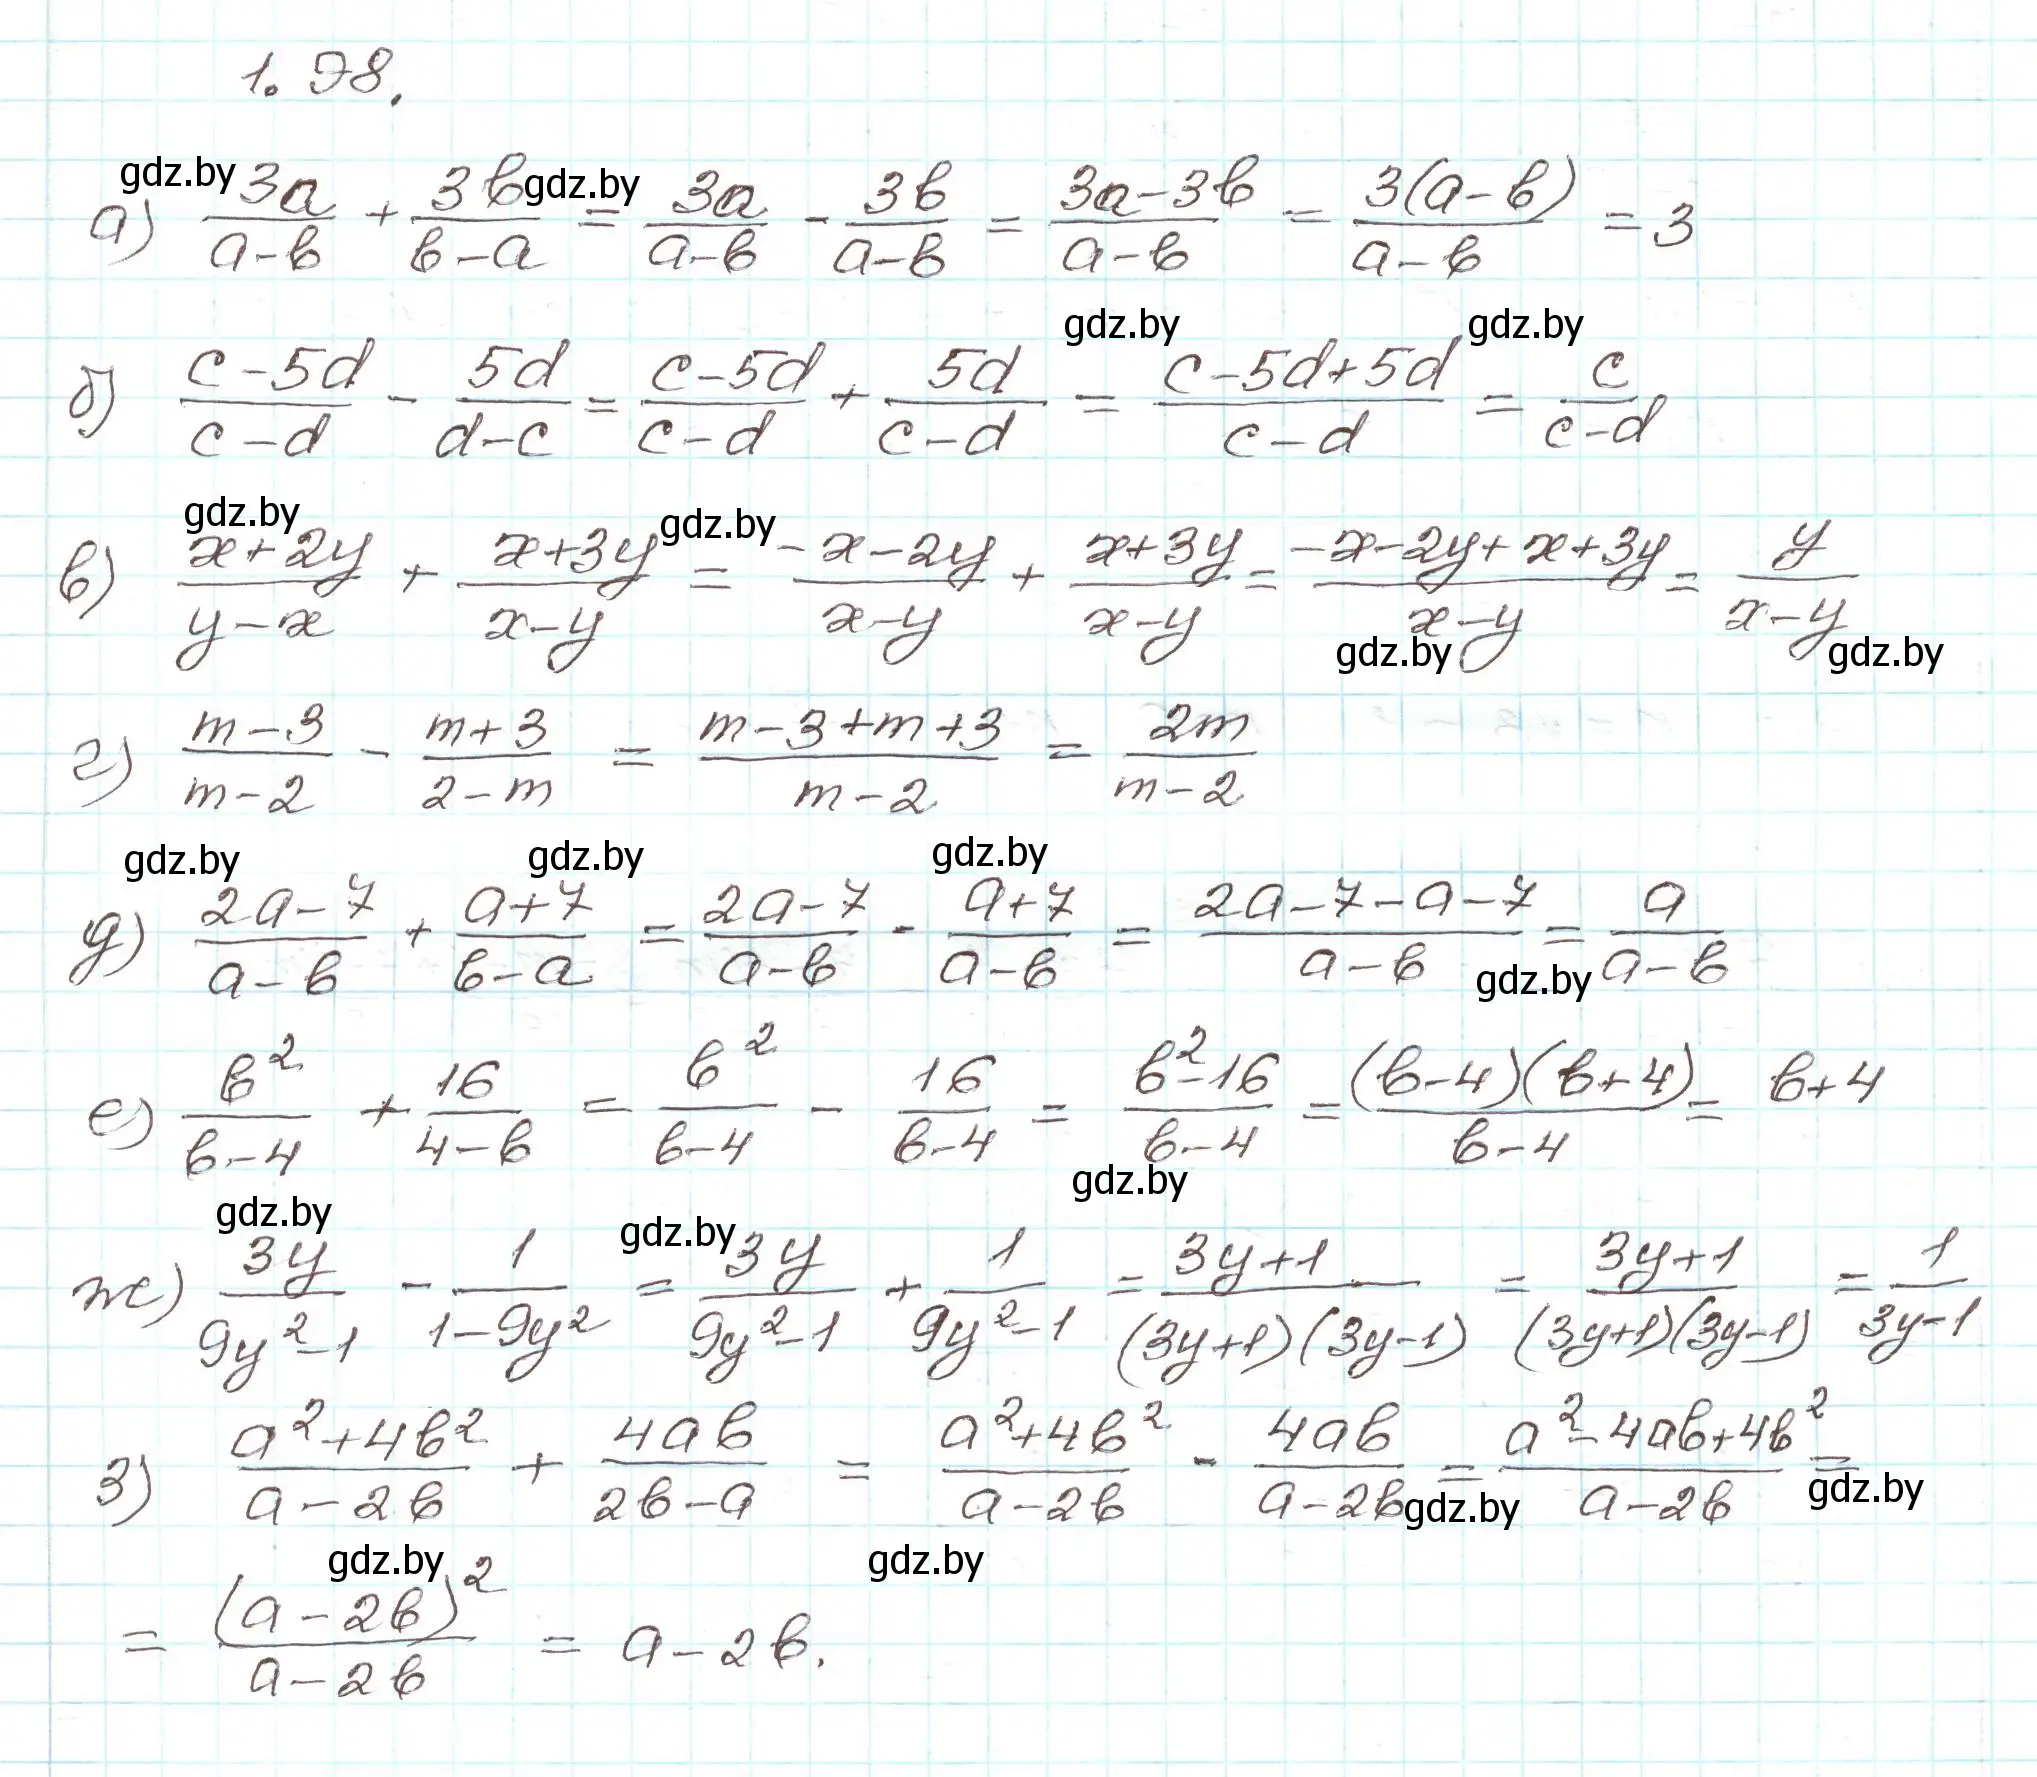 1.98.
gdz.by gdz.by
а) 3a/(a-b) + 3b/(b-a) = 3a/(a-b) - 3b/(a-b) = (3a-3b)/(a-b) = 3(a-b)/(a-b) = 3
gdz.by gdz.by
б) (c-5d)/(c-d) - 5d/(d-c) = (c-5d)/(c-d) + 5d/(c-d) = (c-5d+5d)/(c-d) = c/(c-d)
gdz.by gdz.by
в) (x+2y)/(y-x) + (x+3y)/(x-y) = (-x-2y)/(x-y) + (x+3y)/(x-y) = (-x-2y+x+3y)/(x-y) = y/(x-y)
gdz.by gdz.by
г) (m-3)/(m-2) - (m+3)/(2-m) = (m-3+m+3)/(m-2) = 2m/(m-2)
gdz.by gdz.by gdz.by
д) (2a-7)/(a-b) + (a+7)/(b-a) = (2a-7)/(a-b) - (a+7)/(a-b) = (2a-7-a-7)/(a-b) = a/(a-b)
gdz.by
е) b²/(b-4) + 16/(4-b) = b²/(b-4) - 16/(b-4) = (b²-16)/(b-4) = (b-4)(b+4)/(b-4) = b+4
gdz.by
gdz.by gdz.by
ж) 3y/(9y²-1) - 1/(1-9y²) = 3y/(9y²-1) + 1/(9y²-1) = (3y+1)/((3y+1)(3y-1)) = (3y+1)/((3y+1)(3y-1)) = 1/(3y-1)
з) (a²+4b²)/(a-2b) + 4ab/(2b-a) = (a²+4b²)/(a-2b) - 4ab/(a-2b) = (a²-4ab+4b²)/(a-2b) =
gdz.by gdz.by
gdz.by gdz.by
= (a-2b)²/(a-2b) = a-2b.